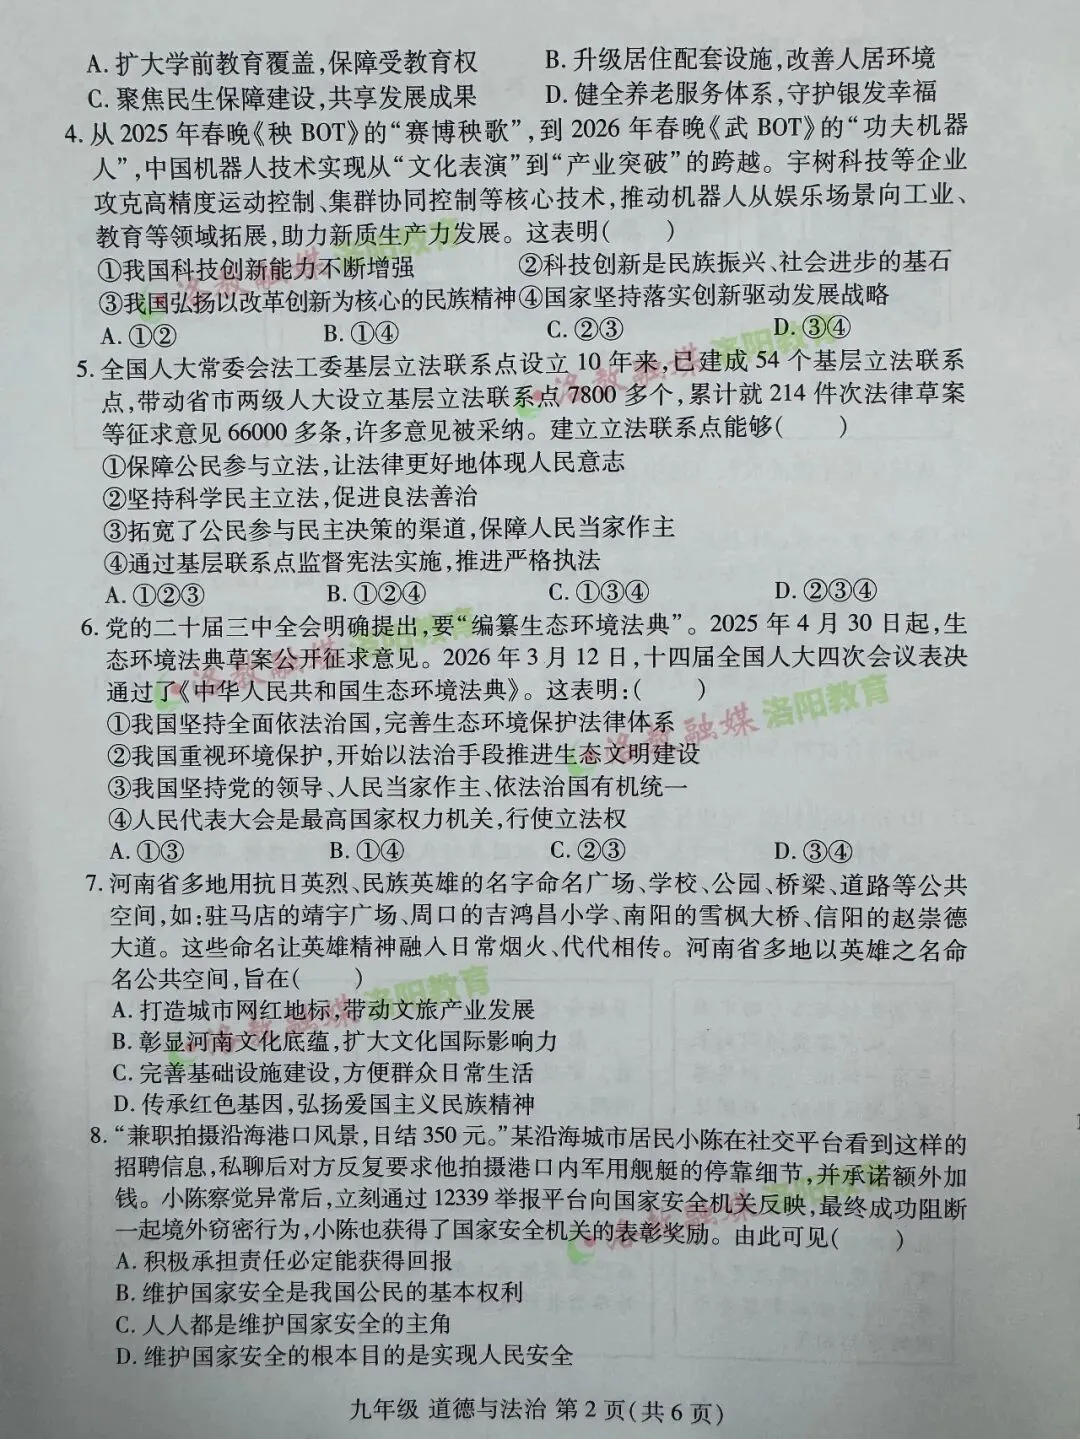 A. 扩大学前教育覆盖,保障受教育权 B. 升级居住配套设施,改善人居环境
C. 聚焦民生保障建设,共享发展成果 D. 健全养老服务体系,守护银发幸福
4. 从 2025 年春晚《秧 BOT》的“赛博秧歌”,到 2026 年春晚《武 BOT》的“功夫机器
人”,中国机器人技术实现从“文化表演”到“产业突破”的跨越。宇树科技等企业
攻克高精度运动控制、集群协同控制等核心技术,推动机器人从娱乐场景向工业、
教育等领域拓展,助力新质生产力发展。这表明( )
①我国科技创新能力不断增强 ②科技创新是民族振兴、社会进步的基石
③我国弘扬以改革创新为核心的民族精神④国家坚持落实创新驱动发展战略
A. ①② B. ①④ C. ②③ D. ③④
5. 全国人大常委会法工委基层立法联系点设立 10 年来,已建成 54 个基层立法联系
点,带动省市两级人大设立基层立法联系点 7800 多个,累计就 214 件次法律草案
等征求意见 66000 多条,许多意见被采纳。建立立法联系点能够( )
①保障公民参与立法,让法律更好地体现人民意志
②坚持科学民主立法,促进良法善治
③拓宽了公民参与民主决策的渠道,保障人民当家作主
④通过基层联系点监督宪法实施,推进严格执法
A. ①②③ B. ①②④ C. ①③④ D. ②③④
6. 党的二十届三中全会明确提出,要“编纂生态环境法典”。2025 年 4 月 30 日起,生
态环境法典草案公开征求意见。2026 年 3 月 12 日,十四届全国人大四次会议表决
通过了《中华人民共和国生态环境法典》。这表明:( )
①我国坚持全面依法治国,完善生态环境保护法律体系
②我国重视环境保护,开始以法治手段推进生态文明建设
③我国坚持党的领导、人民当家作主、依法治国有机统一
④人民代表大会是最高国家权力机关,行使立法权
A. ①③ B. ①④ C. ②③ D. ③④
7. 河南省多地用抗日英烈、民族英雄的名字命名广场、学校、公园、桥梁、道路等公共
空间,如:驻马店的靖宇广场、周口的吉鸿昌小学、南阳的雪枫大桥、信阳的赵崇德
大道。这些命名让英雄精神融入日常烟火、代代相传。河南省多地以英雄之名命
名公共空间,旨在( )
A. 打造城市网红地标,带动文旅产业发展
B. 彰显河南文化底蕴,扩大文化国际影响力
C. 完善基础设施建设,方便群众日常生活
D. 传承红色基因,弘扬爱国主义民族精神
8. “兼职拍摄沿海港口风景,日结 350 元。”某沿海城市居民小陈在社交平台看到这样的
招聘信息,私聊后对方反复要求他拍摄港口内军用舰艇的停靠细节,并承诺额外加
钱。小陈察觉异常后,立刻通过 12339 举报平台向国家安全机关反映,最终成功阻断
一起境外窃密行为,小陈也获得了国家安全机关的表彰奖励。由此可见( )
A. 积极承担责任必定能获得回报
B. 维护国家安全是我国公民的基本权利
C. 人人都是维护国家安全的主角
D. 维护国家安全的根本目的是实现人民安全
九年级 道德与法治 第 2 页(共 6 页)
洛教融媒 洛阳教育
洛教融媒 洛阳教育
洛教融媒 洛阳教育
洛教融媒 洛阳教育
洛教融媒 洛阳教育
洛教融媒 洛阳教育